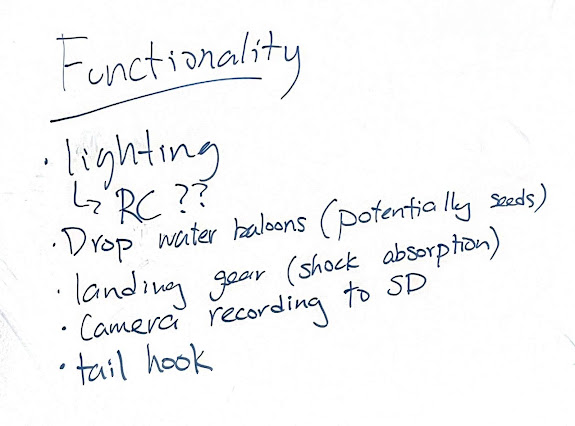 Functionality
· lighting
↳ RC ??
· Drop water baloons (potentially seeds)
· landing gear (shock absorption)
· Camera recording to SD
· tail hook